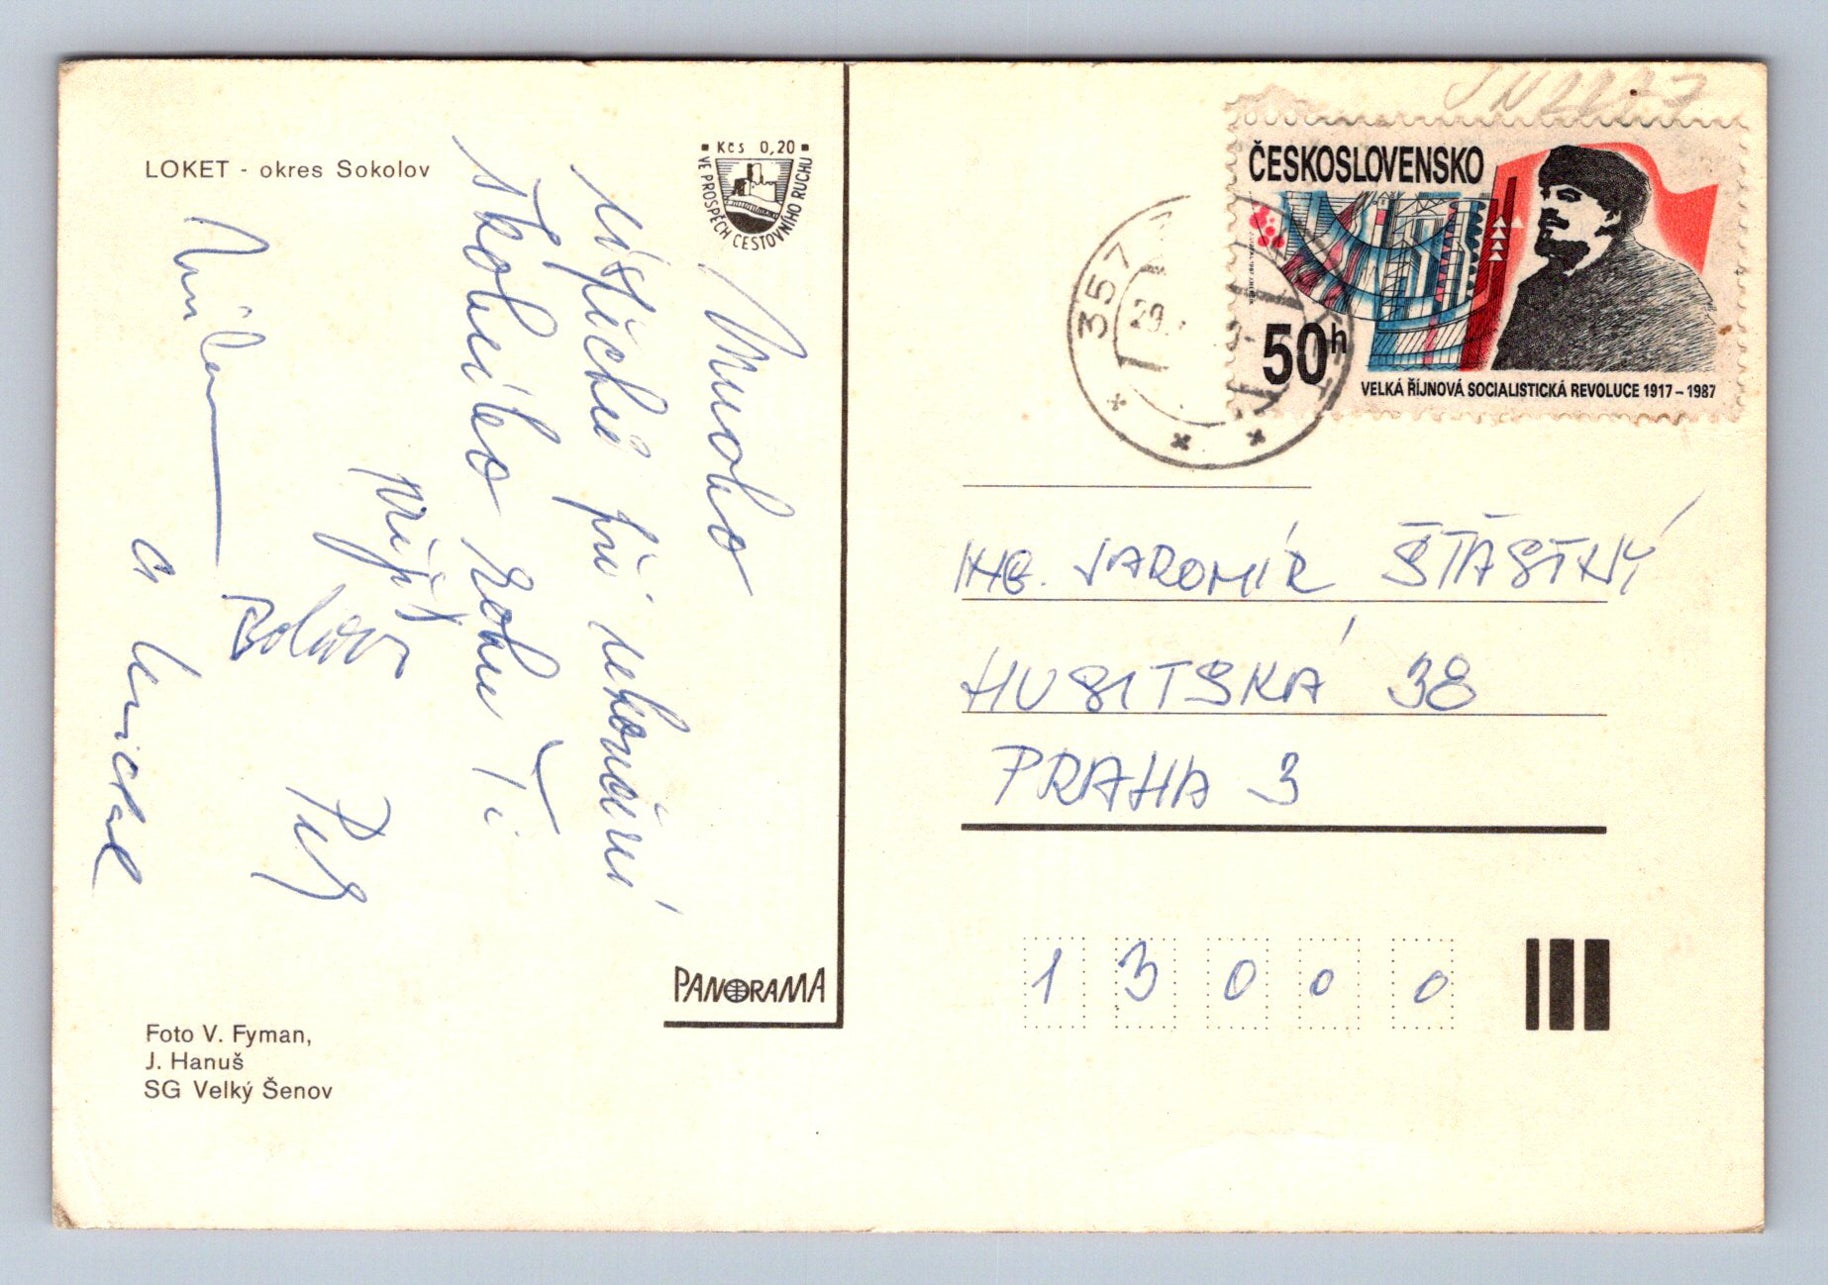 LOKET - okres Sokolov
Kčs 0,20
VE PROSPĚCH CESTOVNÍHO RUCHU
Mnoho
úspěchů při dokončení
školního roku Ti
přeje
Milan
a
PANORAMA
Foto V. Fyman,
J. Hanuš
SG Velký Šenov
ČESKOSLOVENSKO
50h
VELKÁ ŘÍJNOVÁ SOCIALISTICKÁ REVOLUCE 1917-1987
357
29.
ING. JAROMÍR ŠŤASTNÝ
HUSITSKÁ 38
PRAHA 3
13000